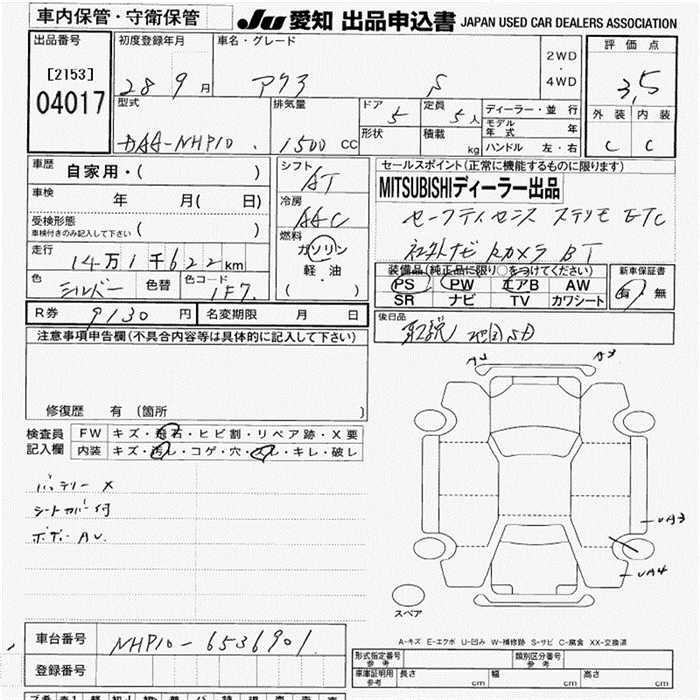 車内保管・守衛保管
JU 愛知 出品申込書 JAPAN USED CAR DEALERS ASSOCIATION
出品番号
[2153]
04017
初度登録年月
28 9月
車名・グレード
アクア S
2WD
・
4WD
評価点
3.5
外装 内装
C C
型式
DAA-NHP10
排気量
1500 CC
ドア 5
定員 5人
形状
積載 kg
ディーラー・並行
モデル年式 年
ハンドル 左・右
車歴 自家用・( )
車検 年 月( 日)
受検形態
車検付きのみ記入して下さい ( )
走行 14万1千622km
色 シルバー 色替
色コード 1F7
シフト AT
冷房 AAC
燃料
ガソリン
軽・油
( )
セールスポイント(正常に機能するものに限ります)
MITSUBISHIディーラー出品
セーフティセンス ステリモ ETC
社外ナビ Rカメラ BT
装備品(純正品に限り○をつけてください)
PS PW エアB AW
SR ナビ TV カワシート
新車保証書
有・無
R券 9130円 名変期限 月 日
後日品
取説
注意事項申告欄(不具合内容等は具体的に記入して下さい)
修復歴 有 (箇所 )
検査員記入欄
FW キズ・飛石・ヒビ割・リペア跡・X要
内装 キズ・汚レ・コゲ・穴・スレ・キレ・破レ
バッテリーX
シートカバー付
ボディーAU
A3
UA3
UA4
スペア
A-キズ E-エクボ U-凹み W-補修跡 S-サビ C-腐食 XX-交換済
車台番号 NHP10-6536901
登録番号
形式指定番号 参考
類別区分番号 参考
車庫証明用 参考 長さ cm 幅 cm 高さ cm